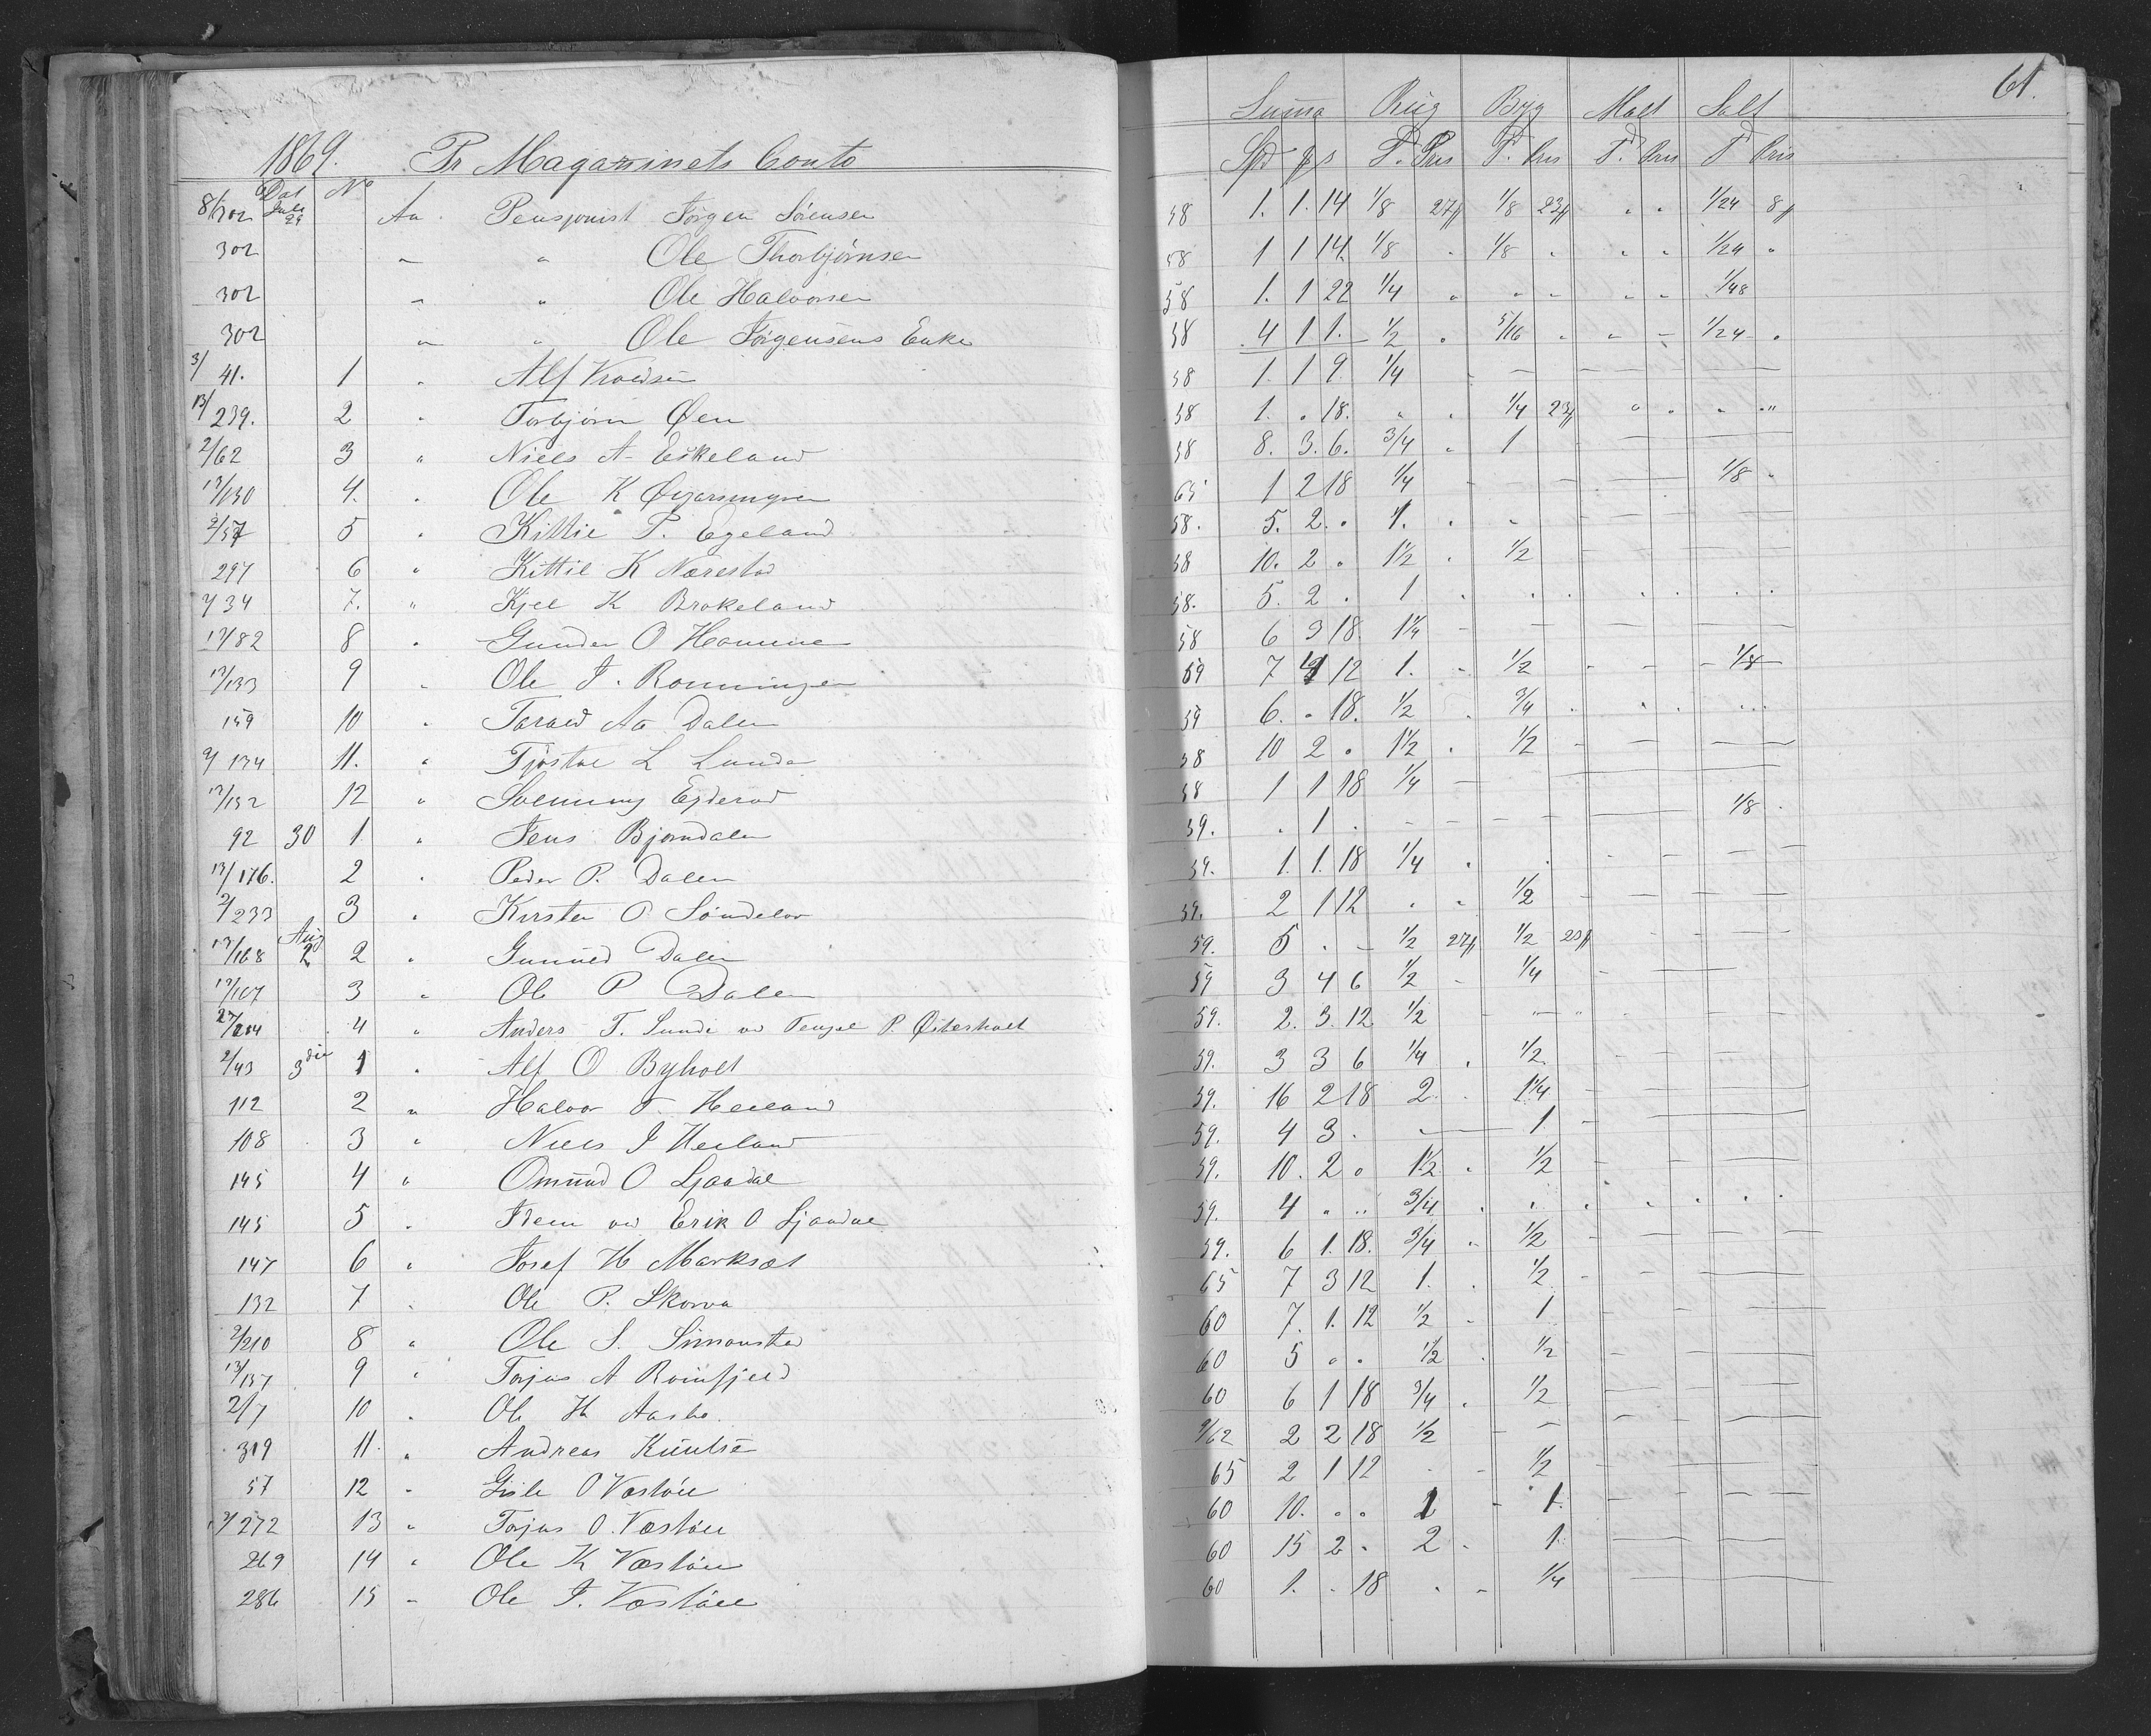 61.
1869. Pr Magazinets Conto
Summa Rug Byg Malt Salt
Dat No Spd ƶ s T. Pris T. Pris T. Pris T Pris
8/302 Juli 29 An Pensjonist Jörgen Sörensen 58 1. 1. 14 1/8 27ƶ 1/8 23ƶ " " 1/24 8ƶ
302 " " Ole Thorbjörnsen 58 1 1 14 1/8 " 1/8 " " " 1/24 "
302 " " Ole Halvorsen 58 1. 1 22 1/4 " " " " " 1/48
302 " " Ole Jörgensens Enke 58 4 1 1. 1/2 " 5/16 " " – 1/24 "
3/41. 1 " Alf Knudsen 58 1. 1 9 1/4
13/239. 2 " Torbjörn Öen 58 1. " 18. " " 1/4 23ƶ " " " "
2/62 3 " Niels A. Eskeland 58 8. 3. 6. 3/4 " 1
13/130 4. " Ole K 65 1 2 18 1/4 1/8 "
2/57 5 " Kittil P. Egeland 58. 5. 2. " 1. " "
297 6 " Kittil K Nærestad 58 10. 2 " 1 1/2 " 1/2
2/34 7. " Kjel K Brokeland 58. 5. 2 " 1 " " " " " " "
13/82 8 " Gunder O Hommme 58 6 3 18 1 1/4
13/133 9 " Ole J. Rönningen 59 7 4 12 1. " 1/2 1/8
159 10 " Tarald Aa Dalen 59 6. " 18. 1/2 " 3/4 " " " "
2/134 11. " Tjöstol L Lunde 58 10 2 " 1 1/2 " 1/2
13/152 12 " Solmung Egderød 58 1 1 18 1/4
92 30 1. " Jens Bjorndalen 59. " 1 " 1/8 "
13/176. 2 " Peder P. Dalen 59. 1. 1. 18 1/4 " "
2/233 3 " Kirsten O Söndelov 59. 2 1 12 " " 1/2
13/168 Aug 2 2 " Gunuld Dalen 59. 5 " – 1/2 27ƶ 1/2 23ƶ
13/167 3 " Ole P Dalen 59 3 4 6 1/2 " 1/4
27/204 4 " Anders T. Lunde vd Tengel P. Österholt 59. 2. 3. 12 1/2
2/43 3die 1 " Alf O Byholt 59. 3 3 6 1/4 " 1/2
112 2 " Halvor T. Heiland 59. 16 2 18 2. " 1 1/4
108 3 " Niels J Heiland 59. 4 3 " 1
145 4 " Omund O Ljaadal 59. 10. 2 " 1 1/2 " 1/2
145 5 " Idem vd Erik O Ljaadal 59. 4 " " 3/4 " " " " " " "
147 6 " Josef H Marksæt 59. 6 1. 18. 3/4 " 1/2
132 7 " Ole P. Skorva 65 7 3 12 1. " 1/2
2/210 8 " Ole S. Simonstad 60 7. 1. 12 1/2 " 1
13/137 9 " Torjus A Röinfjeld 60 5 " " 1/2 " 1/2
2/7 10 " Ole H Aasbo. 60 6 1 18 3/4 " 1/2
319 11. " Andreas 9/62 2 2 18 1/2
57 12 " Gisle O Vastöil 65 2 1 12 " " 1/2
2/272 13 " Torjus O. Vestöil 60 10. " " 1 " 1.
269 14 " Ole K Vestöil 60 15 2 " 2 " 1.
286 15 " Ole J. Vestöil 60 1. " 18 " " 1/4